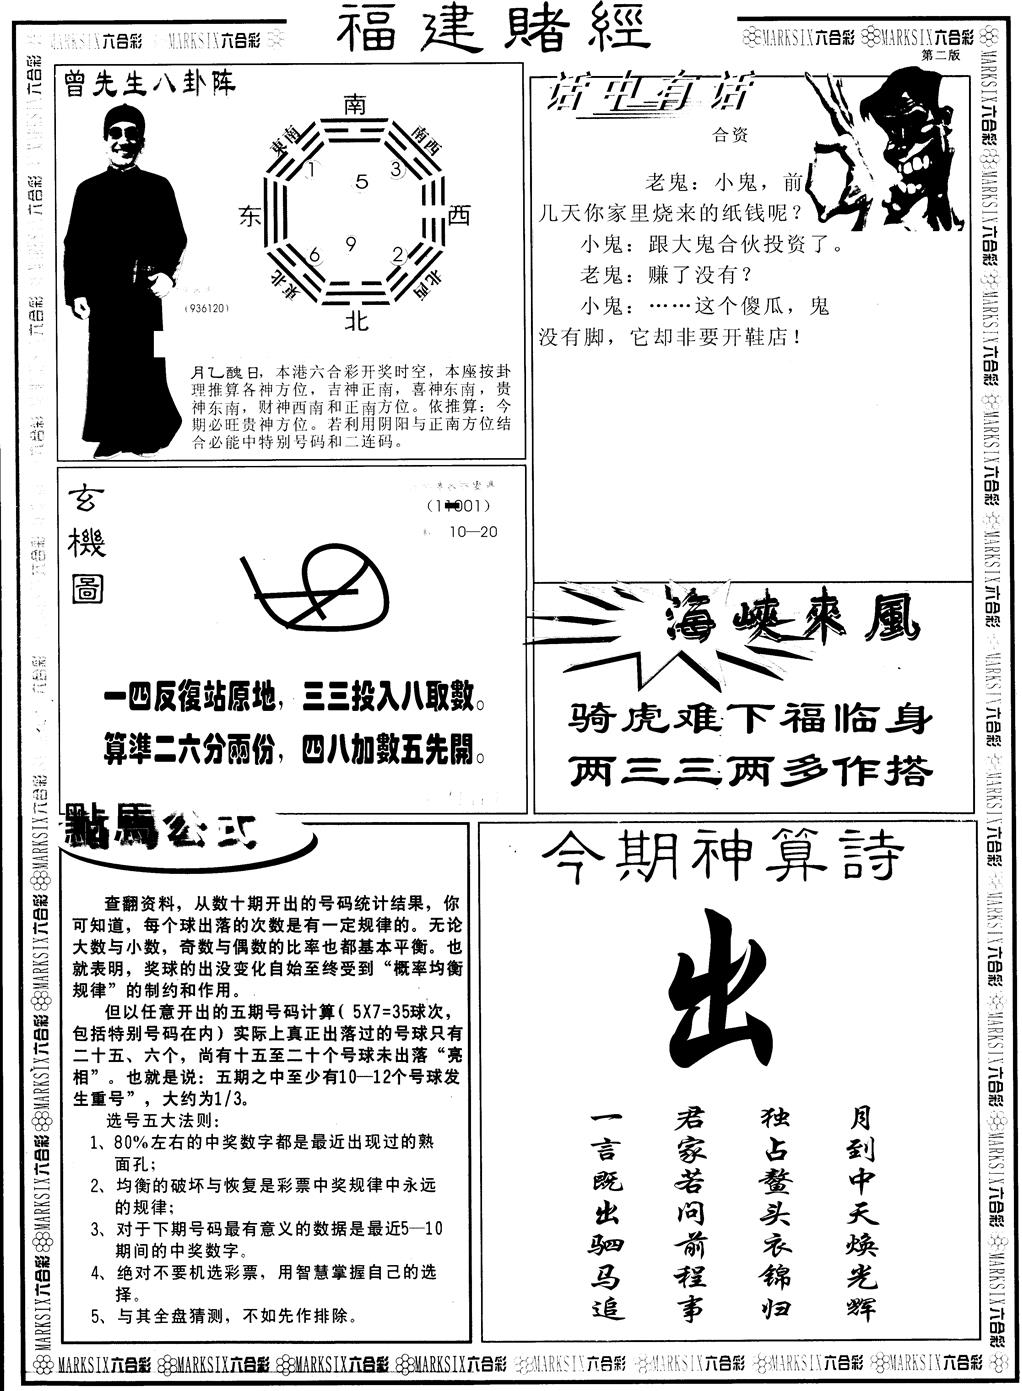 福建賭經
MARKSIX六合彩 MARKSIX六合彩
MARKSIX六合彩 MARKSIX六合彩
第二版
曾先生八卦阵
南
東南
南西
1
3
5
东
西
6
9
2
東北
北西
北
(936120)
月乙醜日，本港六合彩开奖时空，本座按卦
理推算各神方位，吉神正南，喜神东南，贵
神东南，财神西南和正南方位。依推算：今
期必旺贵神方位。若利用阴阳与正南方位结
合必能中特别号码和二连码。
话中有话
合资
老鬼：小鬼，前
几天你家里烧来的纸钱呢？
小鬼：跟大鬼合伙投资了。
老鬼：赚了没有？
小鬼：……这个傻瓜，鬼
没有脚，它却非要开鞋店！
玄機圖
10—20
一四反復站原地，三三投入八取數。
算準二六分兩份，四八加數五先開。
海峽來風
骑虎难下福临身
两三三两多作搭
點馬公式
查翻资料，从数十期开出的号码统计结果，你
可知道，每个球出落的次数是有一定规律的。无论
大数与小数，奇数与偶数的比率也都基本平衡。也
就表明，奖球的出没变化自始至终受到“概率均衡
规律”的制约和作用。
但以任意开出的五期号码计算( 5X7=35球次，
包括特别号码在内）实际上真正出落过的号球只有
二十五、六个，尚有十五至二十个号球未出落“亮
相”。也就是说：五期之中至少有10—12个号球发
生重号”，大约为1/3。
选号五大法则：
1、80%左右的中奖数字都是最近出现过的熟
面孔；
2、均衡的破坏与恢复是彩票中奖规律中永远
的规律；
3、对于下期号码最有意义的数据是最近5—10
期间的中奖数字。
4、绝对不要机选彩票，用智慧掌握自己的选
择。
5、与其全盘猜测，不如先作排除。
今期神算詩
出
月到中天焕光辉
独占鳌头衣锦归
君家若问前程事
一言既出驷马追
MARKSIX六合彩 MARKSIX六合彩 MARKSIX六合彩 MARKSIX六合彩 MARKSIX六合彩 MARKSIX六合彩 MARKSIX六合彩 MARKSIX六合彩